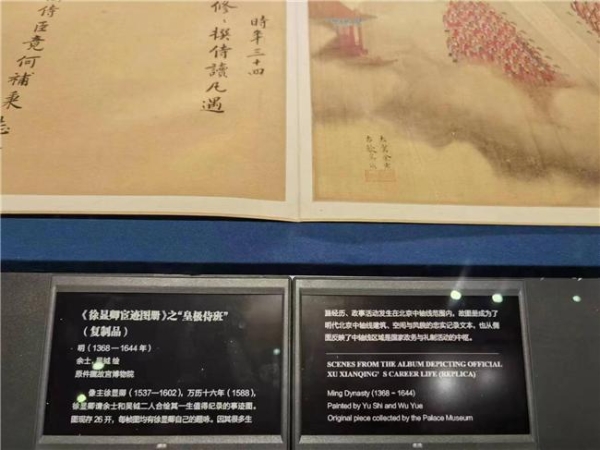 時年三十四
修撰侍讀凡遇
侍臣竟何補秉
《徐显卿宦迹图册》之“皇极侍班”
（复制品）
明（1368－1644年）
余士、吴钺 绘
原件藏故宫博物院
像主徐显卿（1537—1602），万历十六年（1588），
徐显卿请余士和吴钺二人合绘其一生值得纪录的事迹图。
图现存26开，每帧图均有徐显卿自己的题咏。因其很多生
路经历、政事活动发生在北京中轴线范围内，故图册成为了
明代北京中轴线建筑、空间与风貌的忠实记录文本，也从侧
面反映了中轴线区域是国家政务与礼制活动的中枢。
SCENES FROM THE ALBUM DEPICTING OFFICIAL
XU XIANQING'S CAREER LIFE (REPLICA)
Ming Dynasty (1368 - 1644)
Painted by Yu Shi and Wu Yue
Original piece collected by the Palace Museum